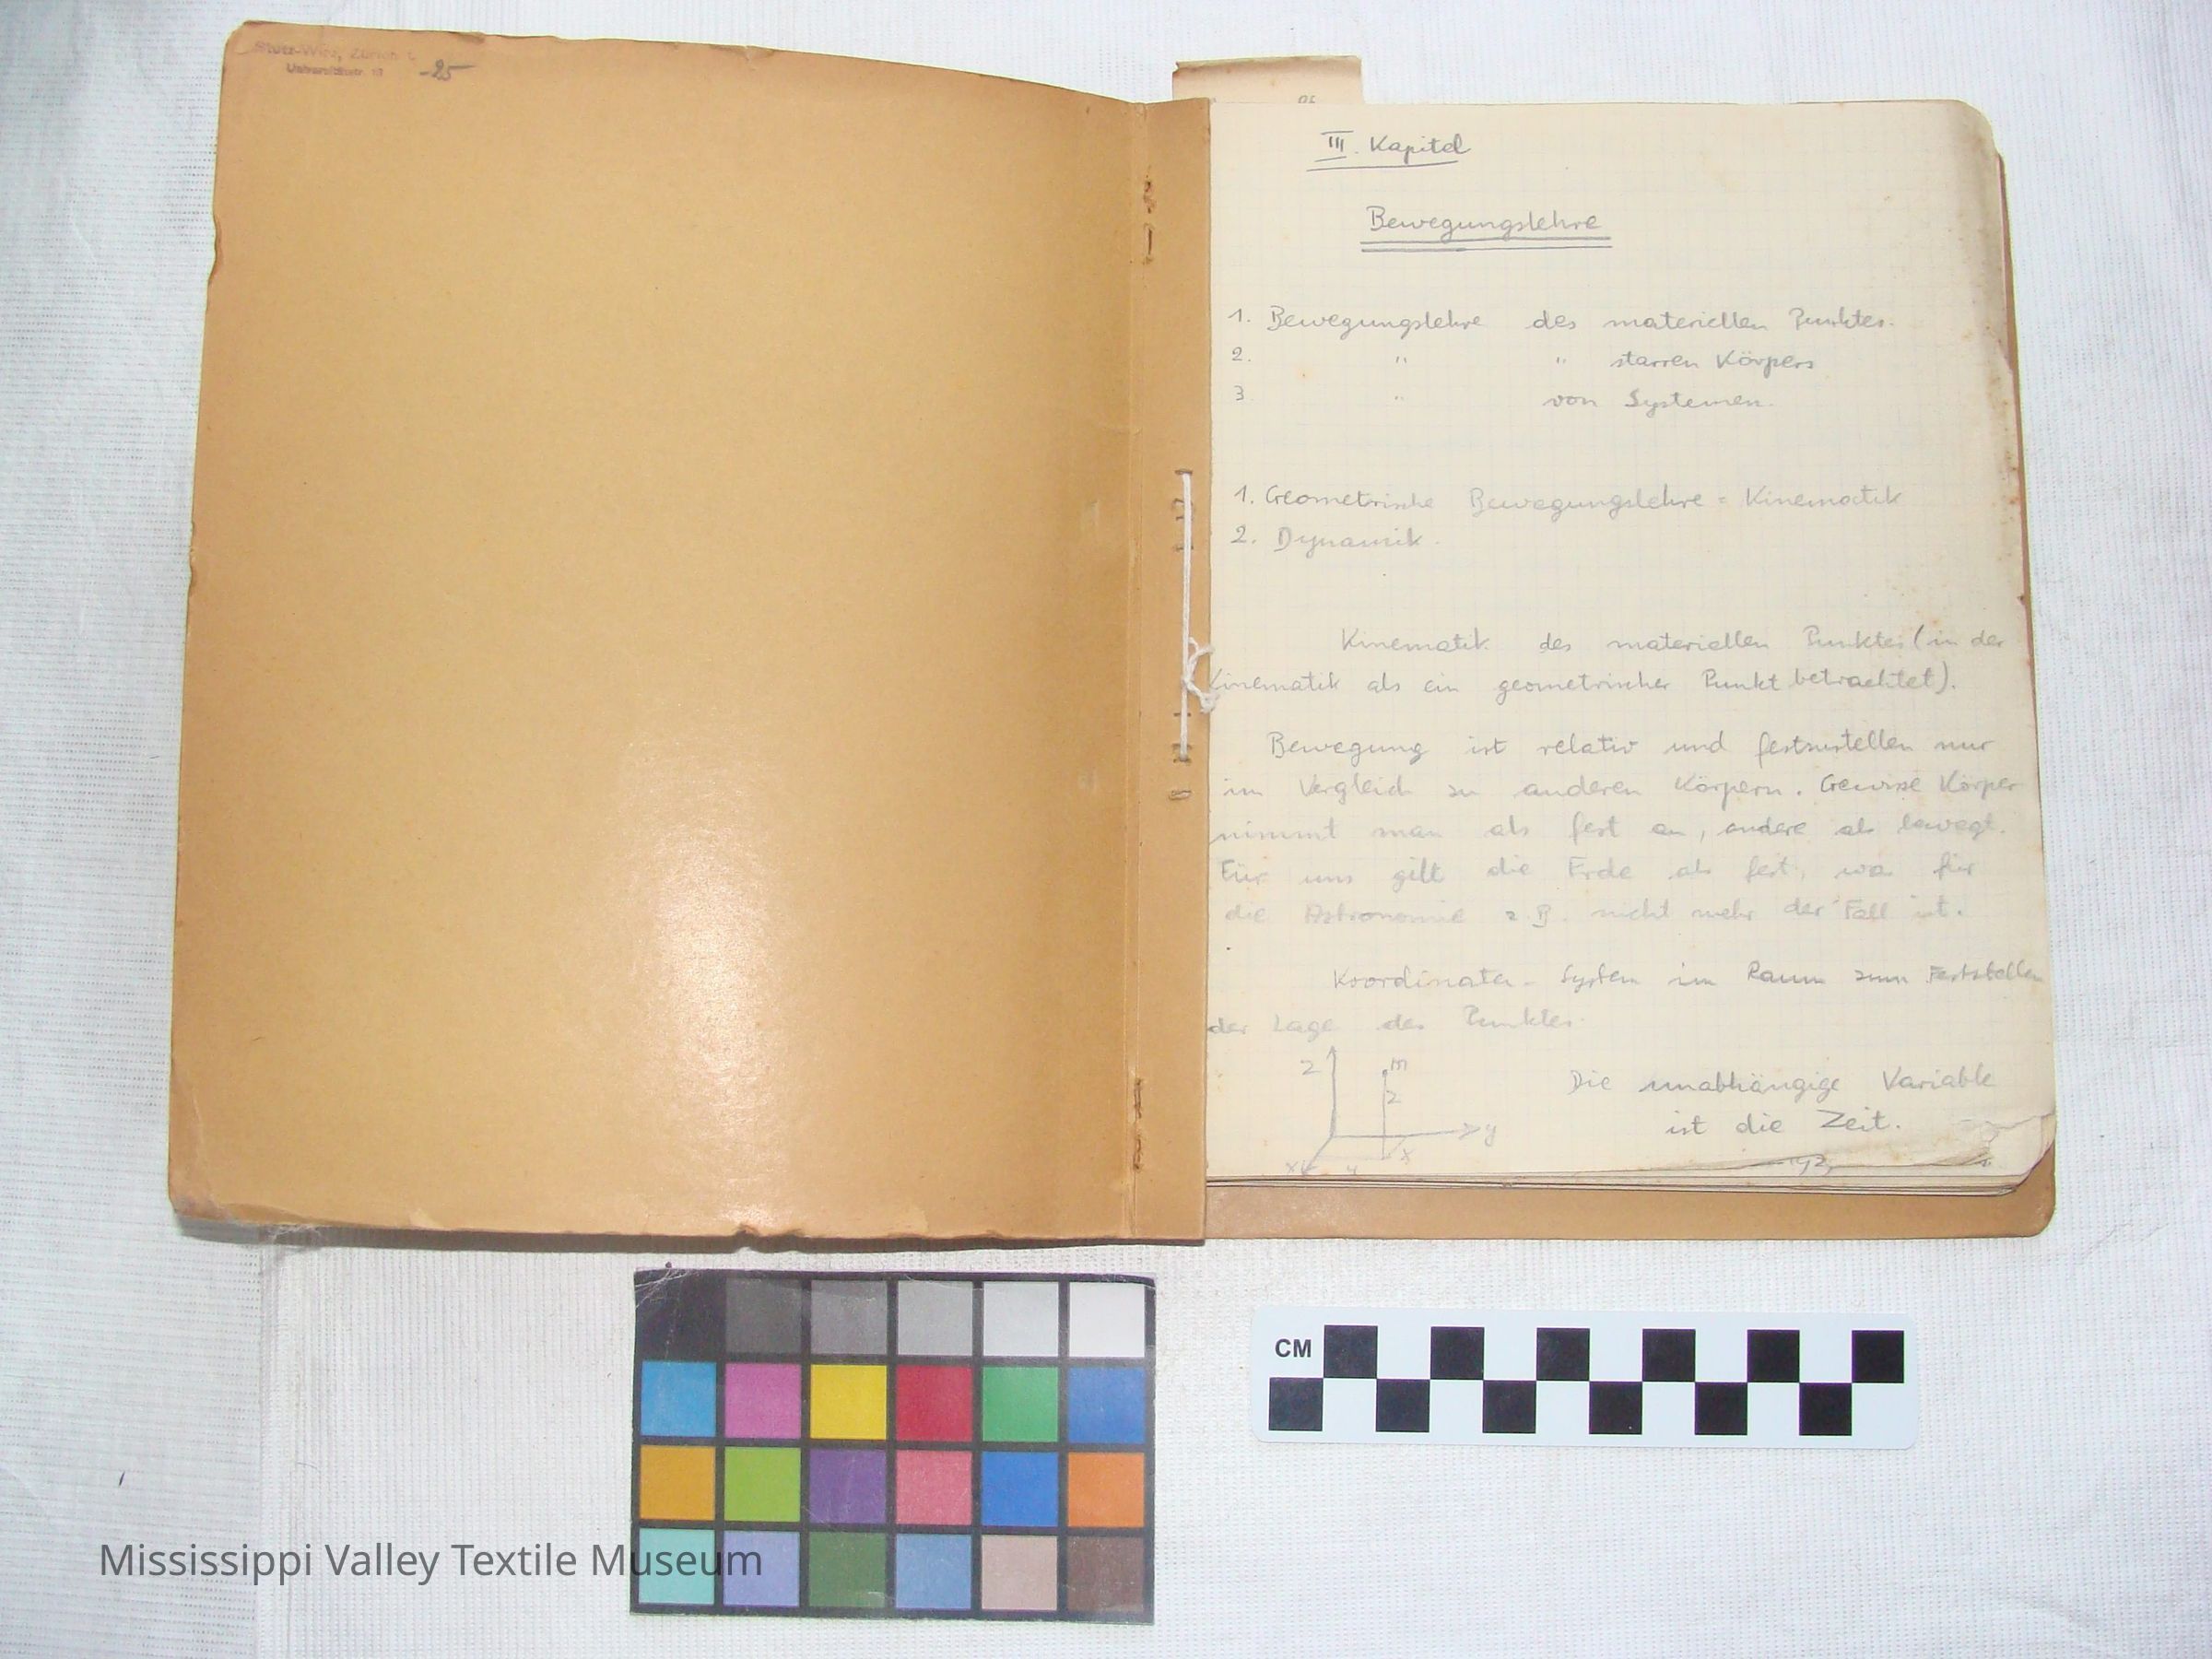 Zürich
-.95
III. Kapitel
Bewegungslehre
1. Bewegungslehre des materiellen Punktes.
2. " " starren Körpers
3 " von Systemen.
1. Geometrische Bewegungslehre = Kinematik
2. Dynamik.
Kinematik des materiellen Punktes (in der
Kinematik als ein geometrischer Punkt betrachtet).
Bewegung ist relativ und festzustellen nur
im Vergleich zu anderen Körpern. Gewisse Körper
nimmt man als fest an, andere als bewegt.
Für uns gilt die Erde als fest, was für
die Astronomie z.B. nicht mehr der Fall ist.
Koordinaten-System im Raum zum Feststellen
der Lage des Punktes.
z m
z
y
x y x
Die unabhängige Variable
ist die Zeit.
CM
Mississippi Valley Textile Museum